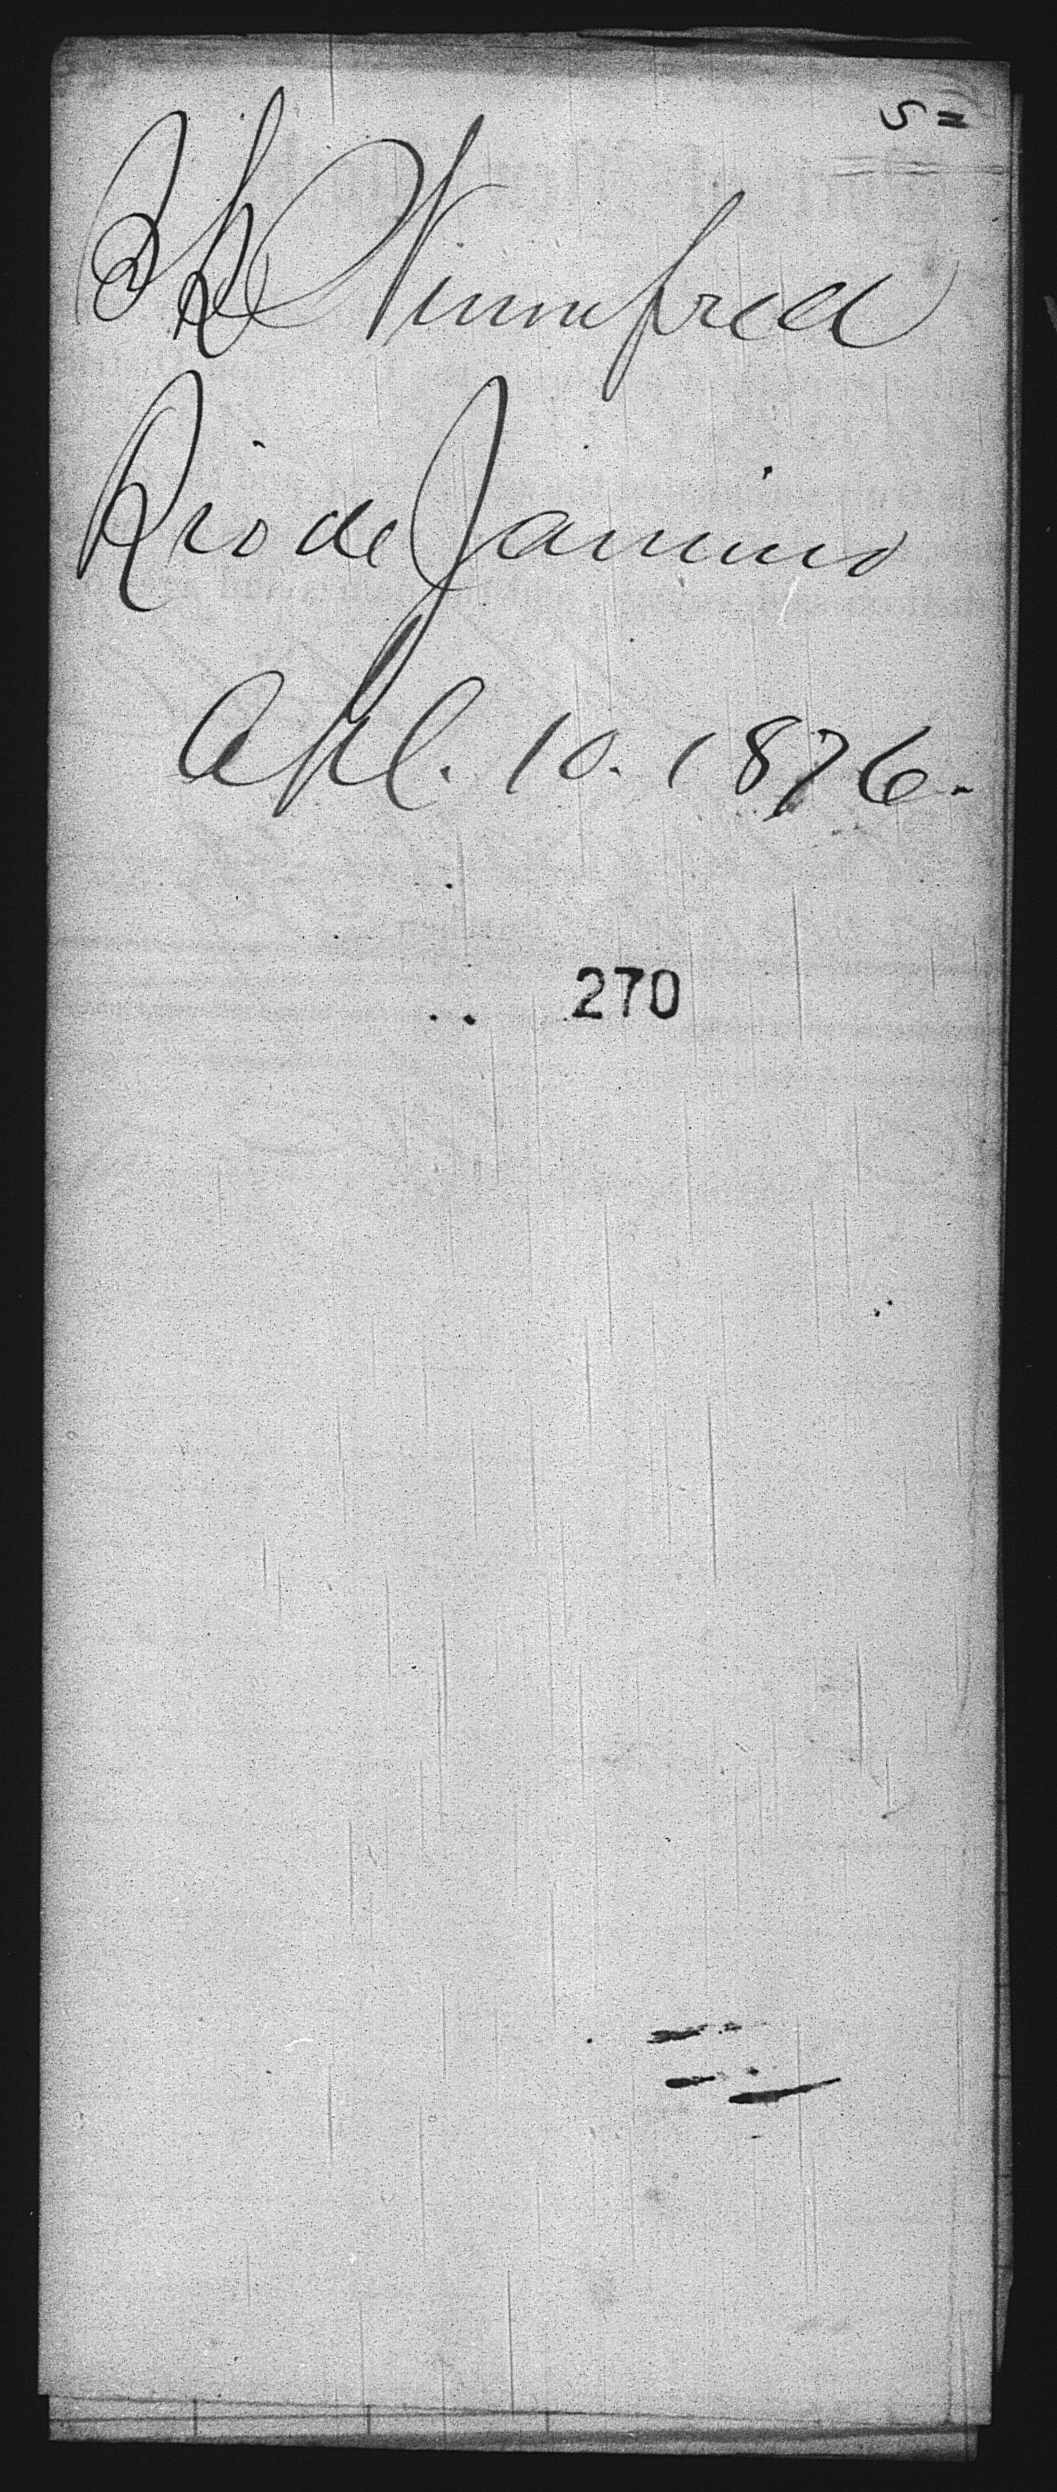 5=
Bk Winnifred
Rio de Janeiro
Apl. 10. 1876.
270